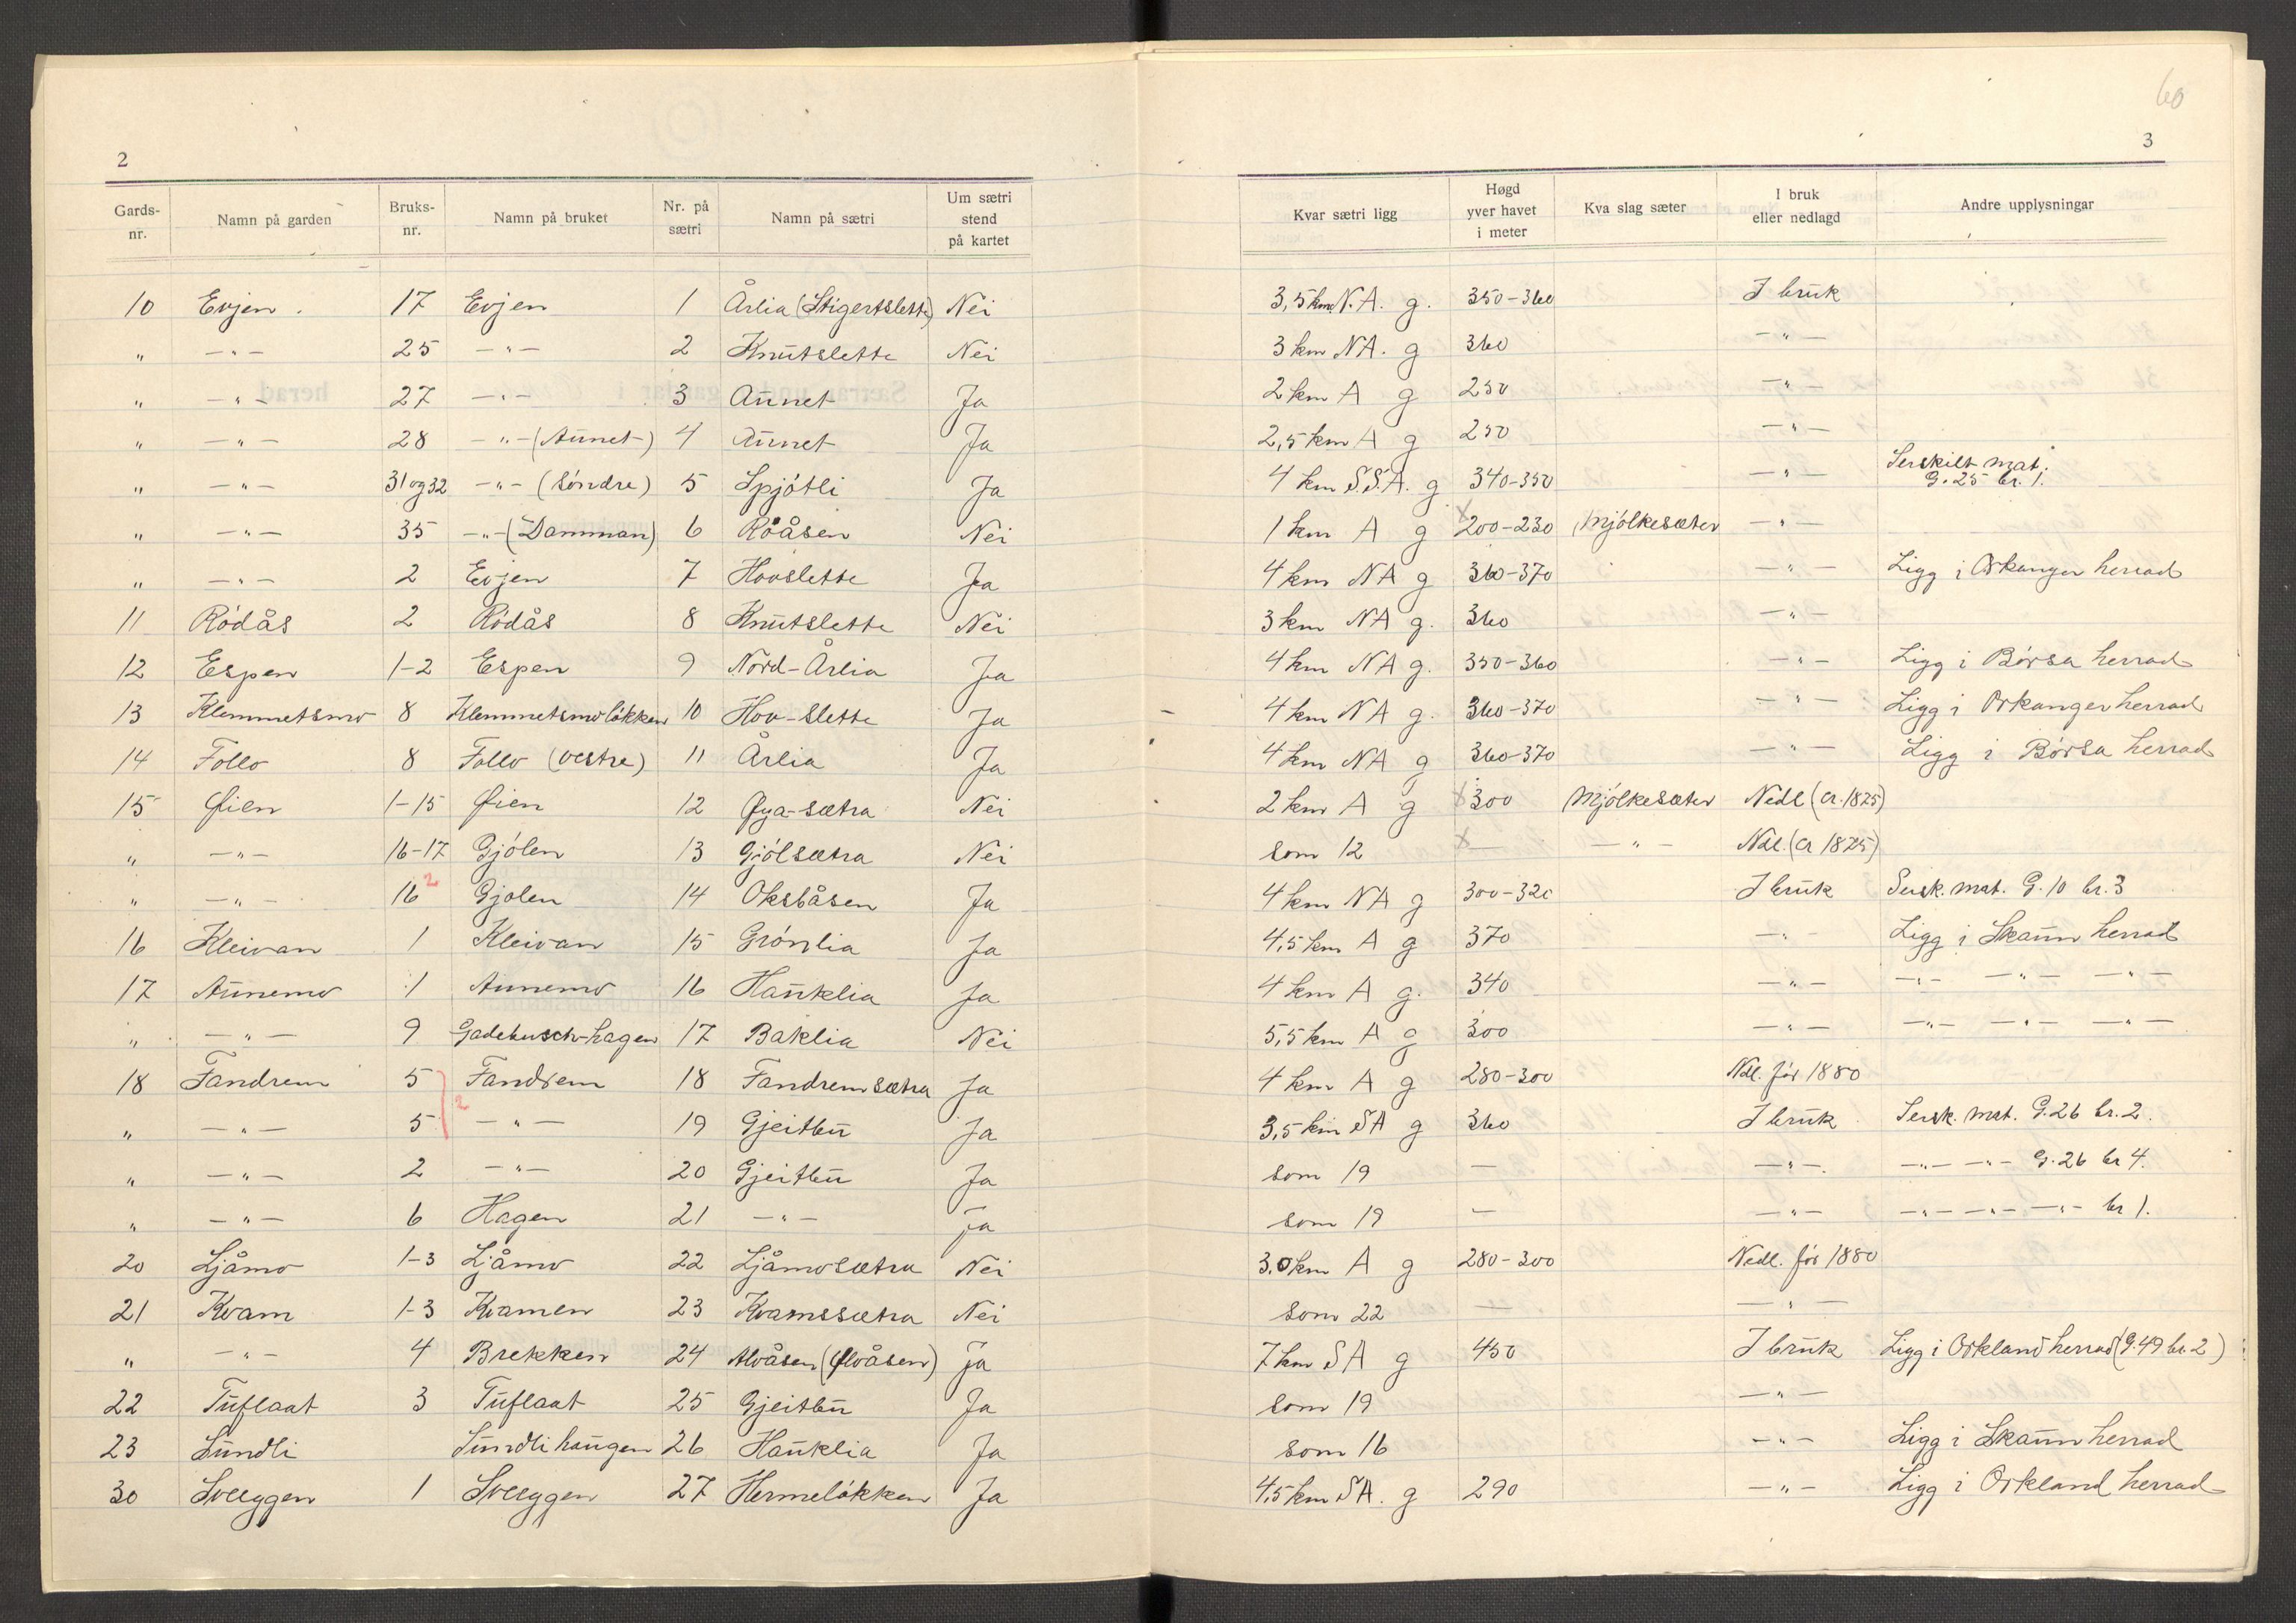 60
2
3
Gards-nr. Namn på garden Bruks-nr. Namn på bruket Nr. på sætri Namn på sætri Um sætri stend på kartet Kvar sætri ligg Høgd yver havet i meter Kva slag sæter I bruk eller nedlagd Andre upplysningar
10 Evjen. 17 Evjen 1 Årlia (Stigertslette) Nei 3,5 km N.A. g. 350-360 I bruk
" -"- 25 -"- 2 Knutslette Nei 3 km NA. g 360 -"-
" -"- 27 -"- 3 Aunet Ja 2 km A g 250 -"-
" -"- 28 -"- (Aunet) 4 Aunet Ja 2,5 km A g 250 -"-
" -"- 31 og 32 -"- (Söndre) 5 Spjótli Ja 4 km S.S.A. g 340-350 -"- Serskilt mat. G. 25 br. 1.
" -"- 35 -"- (Damman) 6 Röåsen Nei 1 km A g x 200-230 Mjólkesæter -"-
" -"- 2 Evjen 7 Hovslette Ja 4 km NA g 360-370 -"- Ligg i Orkanger herrad
11 Ródås 2 Ródås 8 Knutslette Nei 3 km NA g. 360 -"-
12 Espen 1-2 Espen 9 Nord-Årlia Ja 4 km NA g. 350-360 -"- Ligg i Börsa herrad
13 Klemmetsmo 8 Klemmetsmolökken 10 Hov-slette Ja 4 km NA g. 360-370 -"- Ligg i Orkanger herrad
14 Follo 8 Follo (vestre) 11 Årlia Ja 4 km NA g 360-370 -"- Ligg i Börsa herrad
15 Øien 1-15 Øien 12 Øya-sætra Nei 2 km A g x 300 Mjólkesæter Nedl (cr. 1825)
" -"- 16-17 Gjólen 13 Gjólsætra Nei som 12 x — -"- Ndl. (cr 1825)
" -"- 16 2 Gjólen 14 Oksbåsen Ja 4 km NA g 300-320 I bruk Sersk. mat. G. 10 br. 3
16 Kleivan 1 Kleivan 15 Grónlia Ja 4,5 km A g 370 -"- Ligg i Skaun herrad
17 Aunemo 1 Aunemo 16 Hauklia Ja 4 km A g. 340 -"- -"- -"- -"-
" -"- 9 Gadebusch-hagen 17 Baklia Nei 5,5 km A g 300 -"- -"- -"- -"-
18 Fandrem 5 Fandrem 18 Fandremsætra Ja 4 km A g 280-300 Ndl. för 1880
" -"- 5 2 -"- 19 Gjeitbu Ja 3,5 km SA g 360 I bruk Sersk. mat. G. 26 br. 2.
" -"- 2 -"- 20 Gjeitbu Ja som 19 — -"- -"- -"- G. 26 br 4.
" -"- 6 Hagen 21 -"- Ja som 19 — -"- -"- -"- -"- br 1.
20 Ljåmo 1-3 Ljåmo 22 Ljåmosætra Nei 3.0 km A g 280-300 Nedl. för 1880
21 Kvam 1-3 Kvamen 23 Kvamssætra Nei som 22 — -"-
" -"- 4 Brekken 24 Alvåsen (Ølvåsen) Ja 7 km SA g 450 I bruk Ligg i Orkland herrad (G. 49 br. 2)
22 Tuflaat 3 Tuflaat 25 Gjeitbu Ja som 19 -"-
23 Sundli Sundlihaugen 26 Hauklia Ja som 16 -"- Ligg i Skaun herrad
30 Sveggen 1 Sveggen 27 Hermelökken Ja 4,5 km SA. g 290 -"- Ligg i Orkland herrad